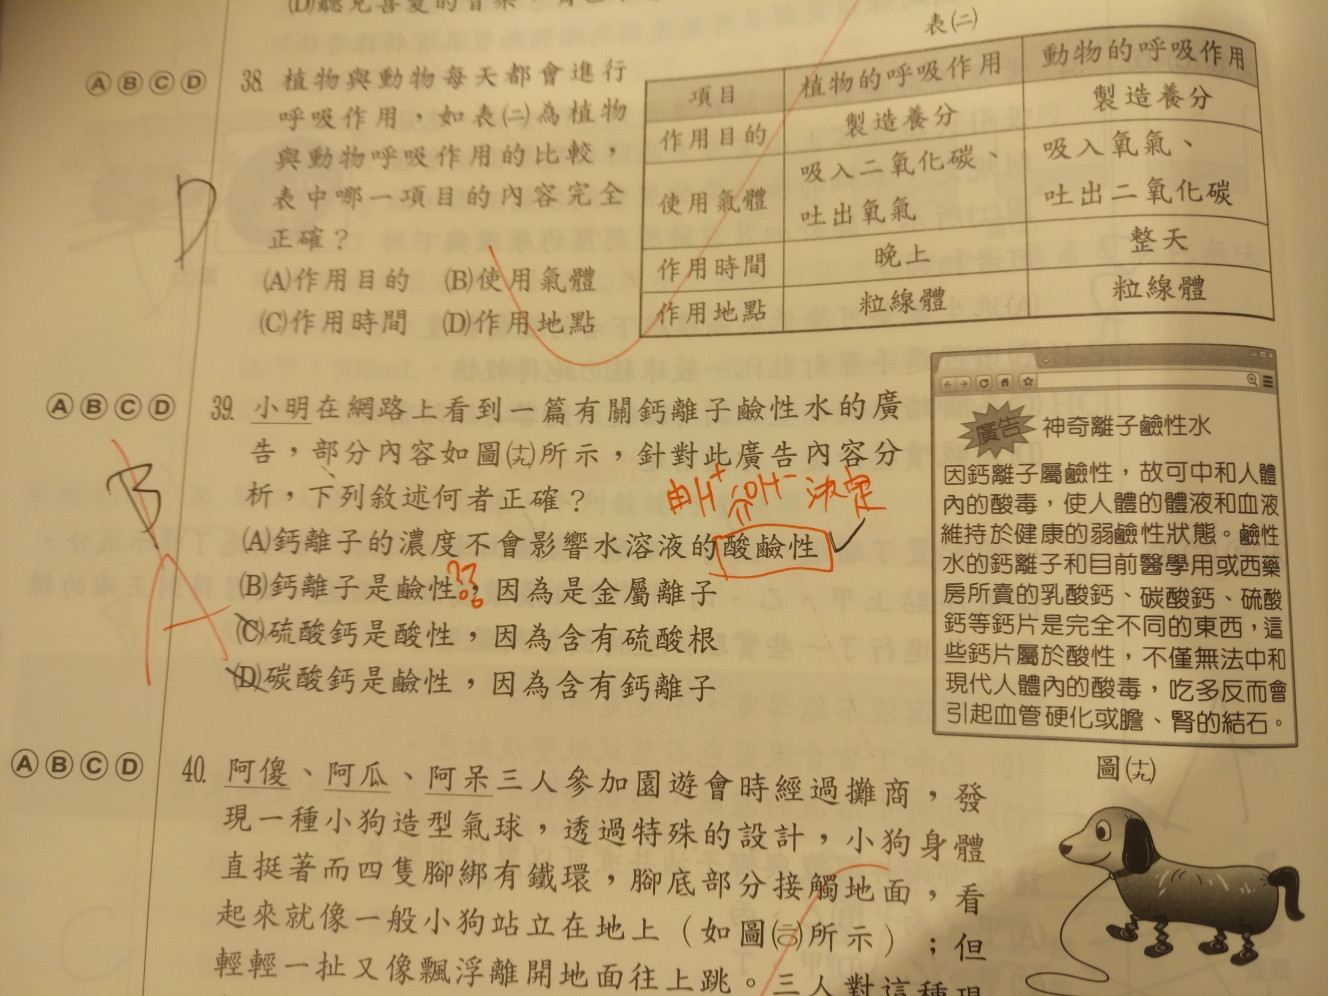 (D)聽見喜愛的音樂，
表㈡
ⒶⒷⒸⒹ 38. 植物與動物每天都會進行
呼吸作用，如表㈡為植物
與動物呼吸作用的比較，
表中哪一項目的內容完全
正確？
(A)作用目的 (B)使用氣體
(C)作用時間 (D)作用地點
D
項目 植物的呼吸作用 動物的呼吸作用
作用目的 製造養分 製造養分
使用氣體 吸入二氧化碳、吐出氧氣 吸入氧氣、吐出二氧化碳
作用時間 晚上 整天
作用地點 粒線體 粒線體
ⒶⒷⒸⒹ 39. 小明在網路上看到一篇有關鈣離子鹼性水的廣
告，部分內容如圖(十九)所示，針對此廣告內容分
析，下列敘述何者正確？
由H⁺ OH⁻決定
(A)鈣離子的濃度不會影響水溶液的酸鹼性
(B)鈣離子是鹼性，因為是金屬離子
??
(C)硫酸鈣是酸性，因為含有硫酸根
(D)碳酸鈣是鹼性，因為含有鈣離子
B
A
廣告 神奇離子鹼性水
因鈣離子屬鹼性，故可中和人體
內的酸毒，使人體的體液和血液
維持於健康的弱鹼性狀態。鹼性
水的鈣離子和目前醫學用或西藥
房所賣的乳酸鈣、碳酸鈣、硫酸
鈣等鈣片是完全不同的東西，這
些鈣片屬於酸性，不僅無法中和
現代人體內的酸毒，吃多反而會
引起血管硬化或膽、腎的結石。
圖(十九)
ⒶⒷⒸⒹ 40. 阿傻、阿瓜、阿呆三人參加園遊會時經過攤商，發
現一種小狗造型氣球，透過特殊的設計，小狗身體
直挺著而四隻腳綁有鐵環，腳底部分接觸地面，看
起來就像一般小狗站立在地上（如圖(二十)所示）；但
輕輕一扯又像飄浮離開地面往上跳。三人對這種現